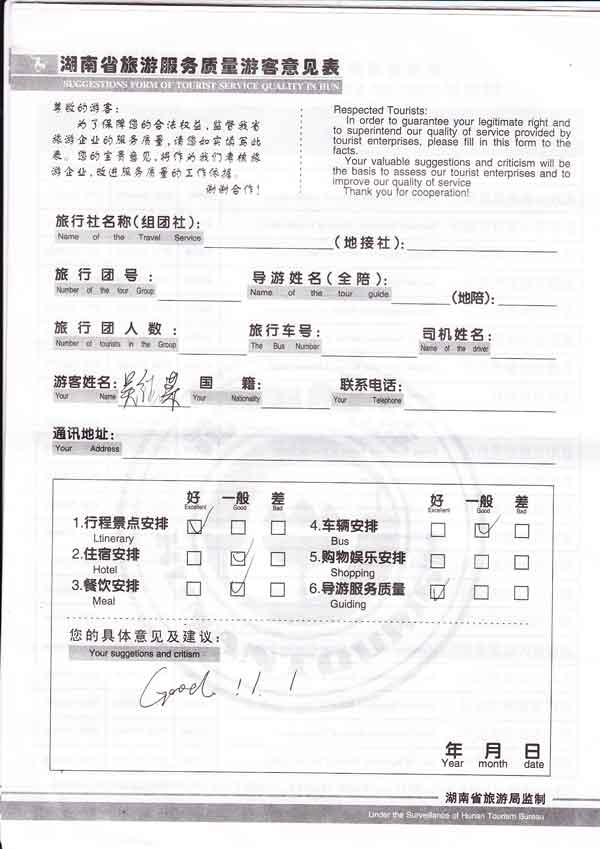 湖南省旅游服务质量游客意见表
SUGGESTIONS FORM OF TOURIST SERVICE QUALITY IN HUN
尊敬的游客:
为了保障您的合法权益,监督我省
旅游企业的服务质量,请您如实填写此
表。您的宝贵意见,将作为我们考核旅
游企业,改进服务质量的工作依据。
谢谢合作!
Respected Tourists:
In order to guarantee your legitimate right and
to superintend our quality of service provided by
tourist enterprises, please fill in this form to the
facts.
Your valuable suggestions and criticism will be
the basis to assess our tourist enterprises and to
improve our quality of service
Thank you for cooperation!
旅行社名称(组团社): (地接社):
Name of the Travel Service
旅行团号: 导游姓名(全陪): (地陪):
Number of the tour Group Name of the tour guide
旅行团人数: 旅行车号: 司机姓名:
Number of tourists in the Group The Bus Number Name of the driver
游客姓名: 吴 国籍: 联系电话:
Your Name Your Nationality Your Telephone
通讯地址:
Your Address
好 一般 差 好 一般 差
Excellent Good Bad Excellent Good Bad
1.行程景点安排 4.车辆安排
Ltinerary Bus
2.住宿安排 5.购物娱乐安排
Hotel Shopping
3.餐饮安排 6.导游服务质量
Meal Guiding
您的具体意见及建议:
Your suggetions and critism
Good !!!
年 月 日
Year month date
湖南省旅游局监制
Under the Surveillance of Hunan Tourism Bureau